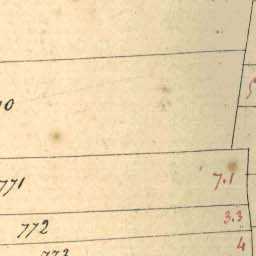 771 7.1
772 3.3
773 4